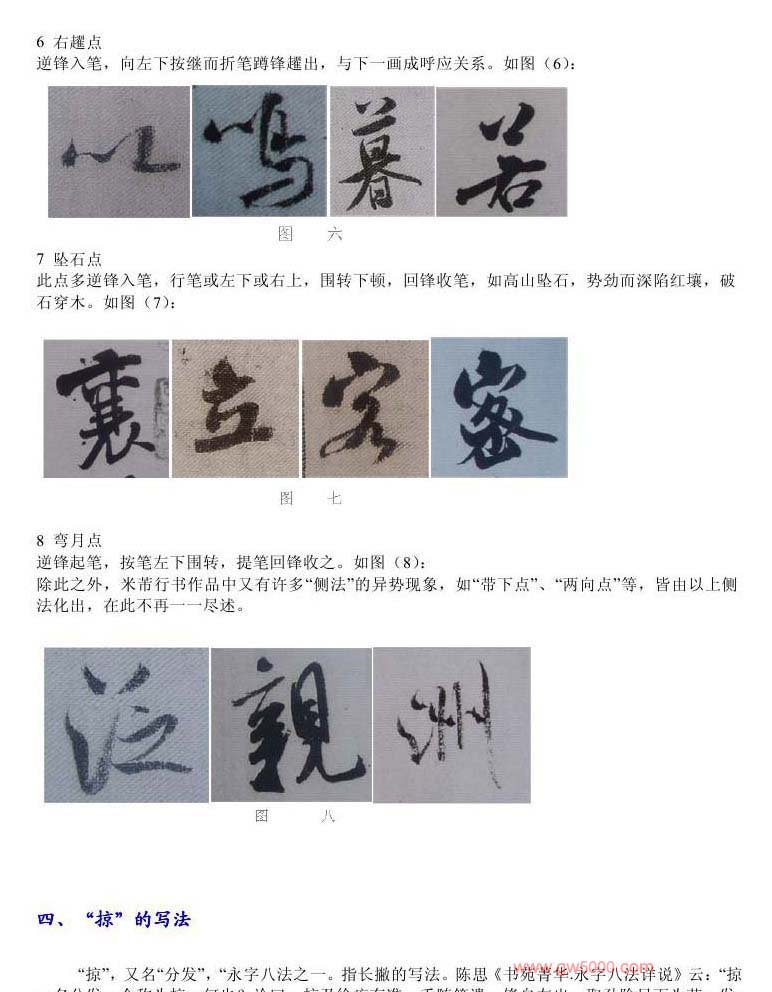 6 右趯点
逆锋入笔，向左下按继而折笔蹲锋趯出，与下一画成呼应关系。如图（6）：
以 鸣 暮 若
图 六
7 坠石点
此点多逆锋入笔，行笔或左下或右上，围转下顿，回锋收笔，如高山坠石，势劲而深陷红壤，破
石穿木。如图（7）：
襄 立 客 密
图 七
8 弯月点
逆锋起笔，按笔左下围转，提笔回锋收之。如图（8）：
除此之外，米芾行书作品中又有许多“侧法”的异势现象，如“带下点”、“两向点”等，皆由以上侧
法化出，在此不再一一尽述。
泛 親 洲
图 八
四、“掠”的写法
“掠”，又名“分发”，“永字八法之一。指长撇的写法。陈思《书苑菁华.永字八法详说》云：“掠
www.qw5000.com